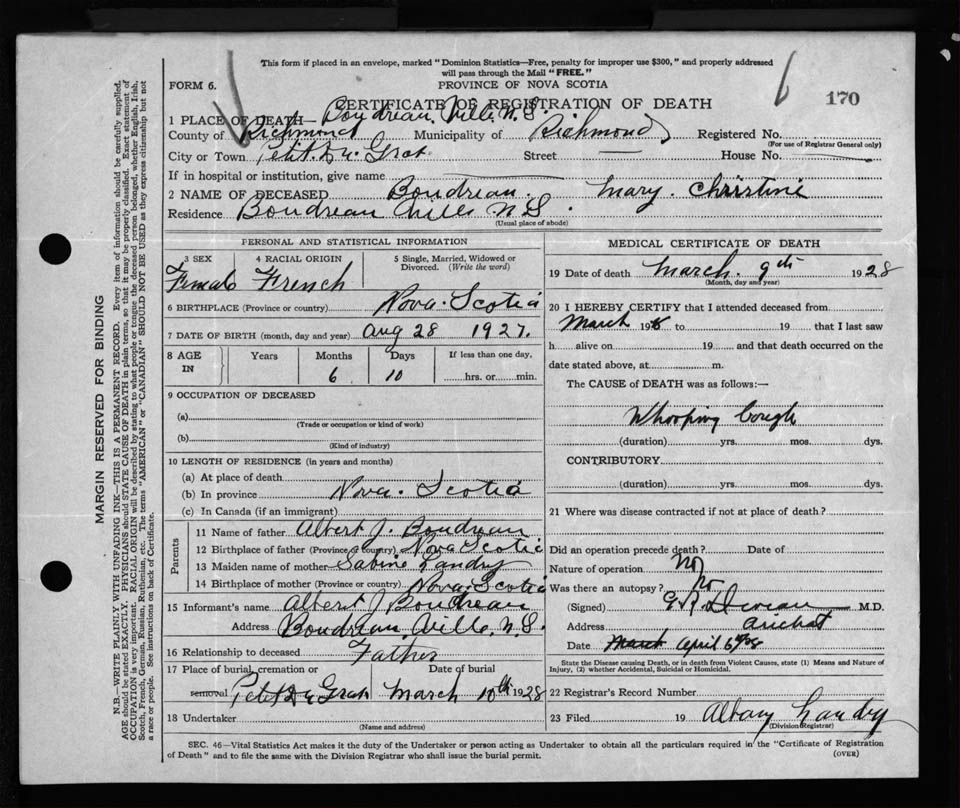 This form if placed in an envelope, marked "Dominion Statistics—Free, penalty for improper use $300," and properly addressed
will pass through the Mail "FREE."
FORM 6.
PROVINCE OF NOVA SCOTIA
170
CERTIFICATE OF REGISTRATION OF DEATH
1 PLACE OF DEATH— Boudreau Ville N.S.
County of Richmond Municipality of Richmond Registered No.
(For use of Registrar General only)
City or Town Petit Du Grat Street — House No. —
If in hospital or institution, give name
2 NAME OF DECEASED Boudreau. Mary. Christine
Residence Boudreau Ville N.S.
(Usual place of abode)
PERSONAL AND STATISTICAL INFORMATION
3 SEX 4 RACIAL ORIGIN 5 Single, Married, Widowed or Divorced. (Write the word)
Female French
6 BIRTHPLACE (Province or country) Nova. Scotia
7 DATE OF BIRTH (month, day and year) Aug 28 1927.
8 AGE IN Years Months Days If less than one day,
6 10 hrs. or min.
9 OCCUPATION OF DECEASED
(a)
(Trade or occupation or kind of work)
(b)
(Kind of industry)
10 LENGTH OF RESIDENCE (in years and months)
(a) At place of death
(b) In province Nova. Scotia
(c) In Canada (if an immigrant)
Parents
11 Name of father Albert J. Boudreau
12 Birthplace of father (Province or country) Nova Scotia
13 Maiden name of mother Sabine Landry
14 Birthplace of mother (Province or country) Nova Scotia
15 Informant's name Albert J Boudreau
Address Boudreau Ville N.S.
16 Relationship to deceased Father
17 Place of burial, cremation or removal Date of burial
Petit Du Grat March 10th 1928
18 Undertaker
(Name and address)
MEDICAL CERTIFICATE OF DEATH
19 Date of death March. 9th 1928
(Month, day and year)
20 I HEREBY CERTIFY that I attended deceased from
March 19 to 19 that I last saw
h alive on 19 and that death occurred on the
date stated above, at m.
The CAUSE of DEATH was as follows:—
Whooping Cough
(duration) yrs. mos. dys.
CONTRIBUTORY
(duration) yrs. mos. dys.
21 Where was disease contracted if not at place of death?
Did an operation precede death? Date of
Nature of operation No
Was there an autopsy? No
(Signed) M.D.
Address Arichat
Date March April
State the Disease causing Death, or in death from Violent Causes, state (1) Means and Nature of
Injury, (2) whether Accidental, Suicidal or Homicidal.
22 Registrar's Record Number
23 Filed 19 Albany Landry
(Division Registrar)
SEC. 46—Vital Statistics Act makes it the duty of the Undertaker or person acting as Undertaker to obtain all the particulars required in the "Certificate of Registration
of Death" and to file the same with the Division Registrar who shall issue the burial permit.
(OVER)
MARGIN RESERVED FOR BINDING
N.B.—WRITE PLAINLY WITH UNFADING INK—THIS IS A PERMANENT RECORD. Every item of information should be carefully supplied.
AGE should be stated EXACTLY. PHYSICIANS should STATE CAUSE OF DEATH in plain terms, so that it may be properly classified. Exact statement of
OCCUPATION is very important. RACIAL ORIGIN will be described by stating to what people or tongue the deceased person belonged, whether English, Irish,
Scotch, French, German, Russian, Ruthenian, etc. The terms "AMERICAN" or "CANADIAN" SHOULD NOT BE USED as they express citizenship but not
a race or people. See instructions on back of Certificate.